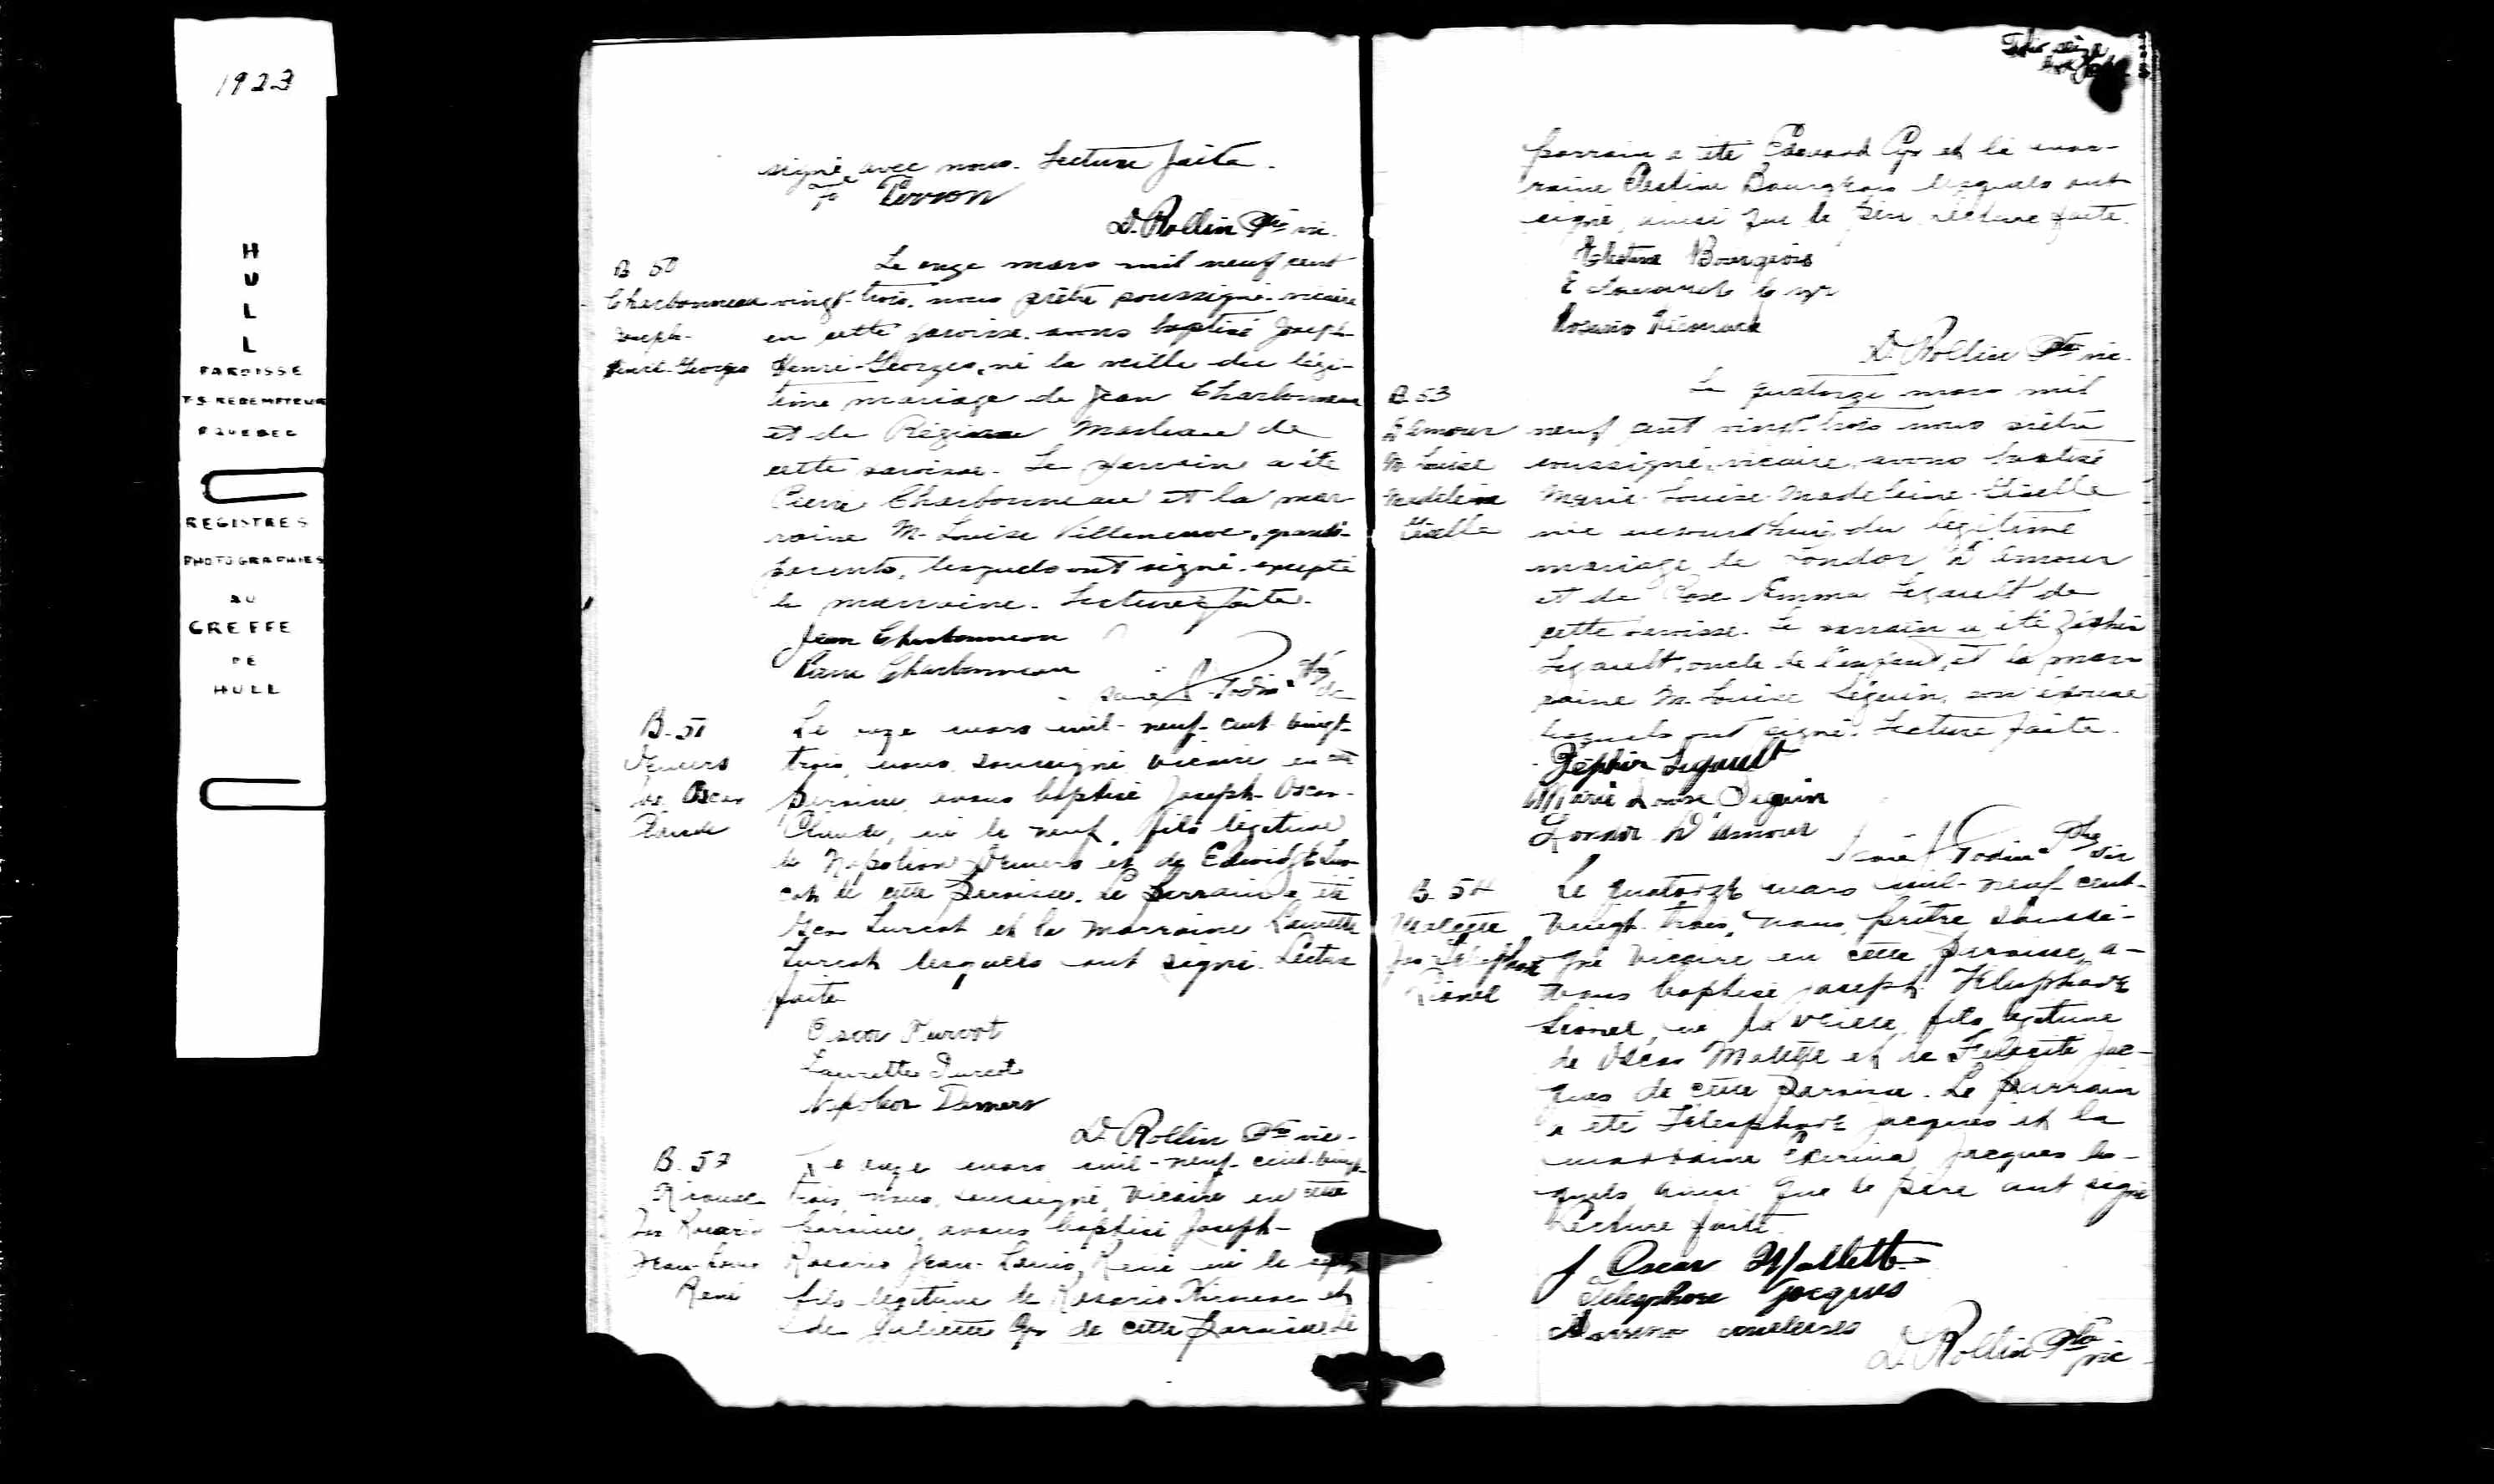 1923
HULL
PAROISSE
T-S REDEMPTEUR
P QUEBEC
REGISTRES
PHOTOGRAPHIES
AU
GREFFE
DE
HULL
signé avec nous. Lecture faite.
Perron
D. Rollin Ptre vic.
B 50
Charbonneau
Joseph-
Henri-Georges
Le onze mars mil neuf cent
vingt-trois, nous prêtre soussigné, vicaire
en cette paroisse, avons baptisé Joseph-
Henri-Georges, né la veille du légi-
time mariage de Jean Charbonneau
et de Régina de
cette paroisse. Le parrain a été
Pierre Charbonneau et la mar-
raine M. Louise Villeneuve, grands-
parents, lesquels ont signé, excepté
la marraine. Lecture faite.
Jean Charbonneau
Pierre Charbonneau
B-51
Demers
Jos. Oscar
Claude
Le onze mars mil-neuf-cent-vingt-
trois, nous, soussigné vicaire en cette
paroisse, avons baptisé Joseph-Oscar-
Claude, né le neuf, fils légitime
de Napoléon Demers et de Edwidge Tur-
cot de cette paroisse. Le parrain a été
Oscar Turcot et la marraine Laurette
Turcot lesquels ont signé. Lecture
faite
Oscar Turcot
Laurette Turcot
Napoléon Demers
D. Rollin Ptre vic.
B. 52
Jos Rosario
Jean-Louis
René
Le onze mars mil-neuf-cent-vingt-
trois, nous, soussigné, vicaire en cette
paroisse, avons baptisé Joseph-
Rosario Jean-Louis, René né le sept
fils légitime de Rosario et
de Juliette Cyr de cette paroisse. Le
Folio seize
parrain a été Edouard Cyr et la mar-
raine Bourgeois lesquels ont
signé, ainsi que le père. Lecture faite.
Bourgeois
Rosario
D. Rollin Ptre vic.
B. 53
D'Amour
M. Louise
Madeleine
Giselle
Le quatorze mars mil
neuf cent vingt-trois nous prêtre
soussigné, vicaire, avons baptisé
Marie-Louise-Madeleine-Giselle
née aujourd'hui, du légitime
mariage de Londor D'Amour
et de Rose Emma Legault de
cette paroisse. Le parrain a été Zéphir
Legault, oncle de l'enfant, et la mar-
raine M. Louise Séguin, son épouse
lesquels ont signé. Lecture faite.
Zéphir Legault
Marie Louise Seguin
Londor D'Amour
B. 54
Malette
Jos-Télesphore
Lionel
Le quatorze mars mil-neuf-cent-
vingt-trois, nous, prêtre soussi-
gné vicaire en cette paroisse, a-
vons baptisé Joseph Télesphore
Lionel, né la veille, fils légitime
de Oscar Malette et de Félicité Jac-
ques de cette paroisse. Le parrain
a été Télesphore Jacques et la
marraine Jacques les-
quels ainsi que le père ont signé
Lecture faite.
J Oscar Mallette
Télesphore Jacques
D. Rollin Ptre vic